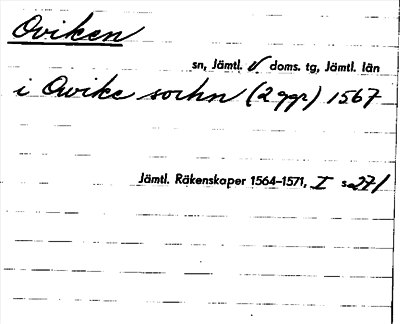 Oviken
sn, Jämtl. v doms. tg, Jämtl. län
i Owike sochn (2 ggr) 1567
Jämtl. Räkenskaper 1564–1571, I s. 271